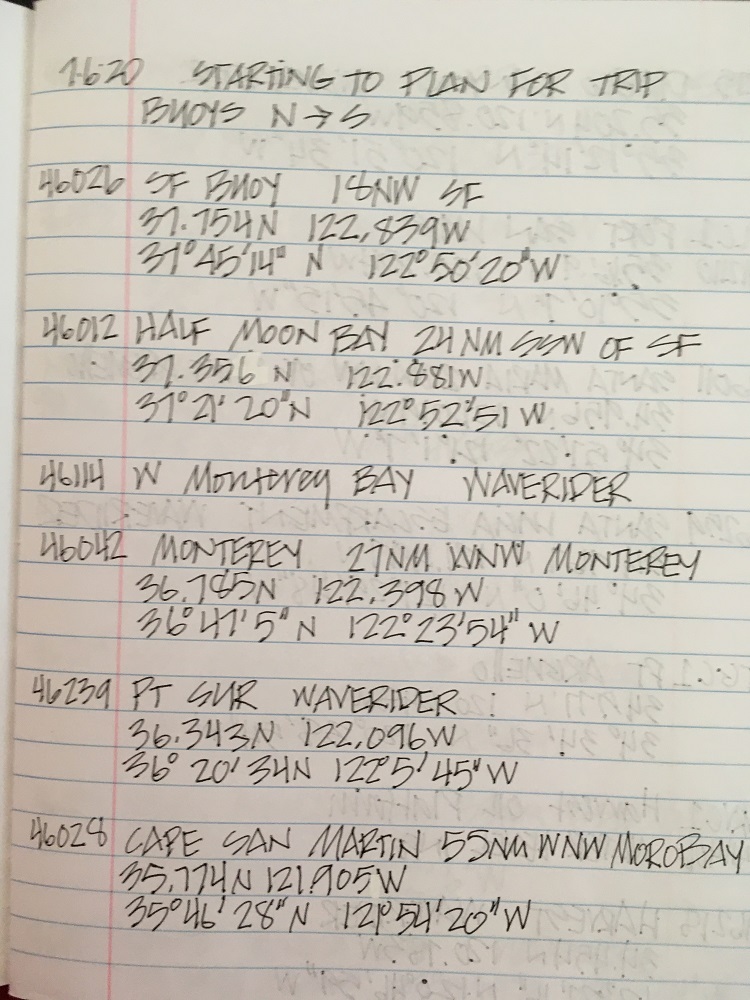 7.6.20 STARTING TO PLAN FOR TRIP
BUOYS N → S
46026 SF BUOY 18NW SF
37.754N 122.839W
37°45'14" N 122°50'20"W
46012 HALF MOON BAY 24NM SSW OF SF
37.356 N 122.881W
37°21'20"N 122°52'51 W
46114 W Monterey BAY WAVERIDER
46042 MONTEREY 27NM WNW MONTEREY
36.785N 122.398W
36°47'5"N 122°23'54" W
46239 PT SUR WAVERIDER
36.343N 122.096W
36° 20' 34N 122°5' 45" W
46028 CAPE SAN MARTIN 55NM WNW MORO BAY
35.774N 121.905W
35°46'28"N 121°54'20"W